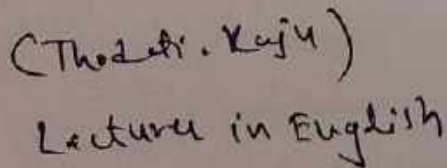 (Thodeti. Raju)
Lecturer in English